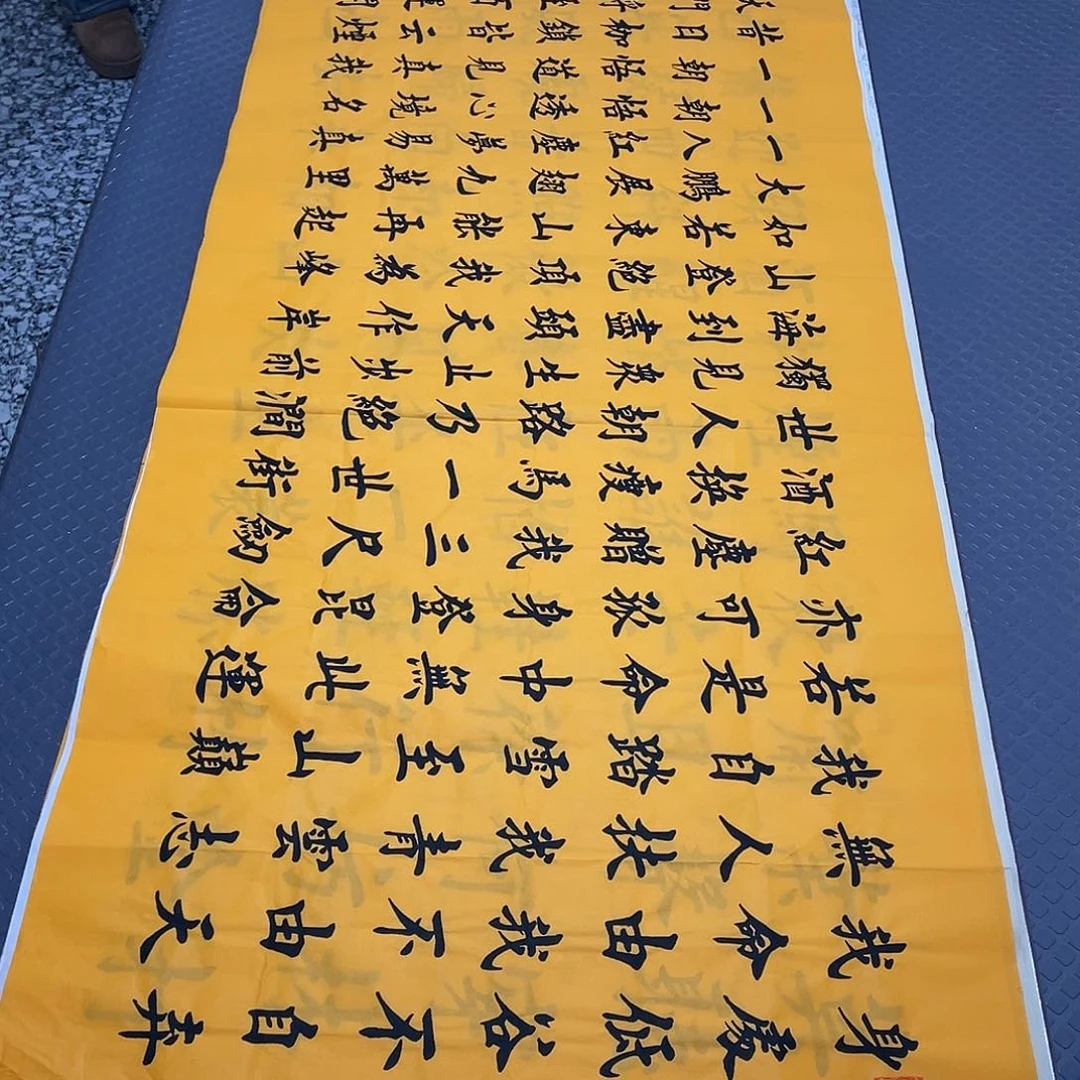 昔日枷鎖皆云煙
一朝悟道見真我
一朝悟透心境名
一入紅塵夢易真
大鵬展翅九萬里
如若東山能再起
山登絕頂我為峰
海到盡頭天作岸
獨見眾生止步前
世人朝路乃絕澗
酒換瘦馬一世街
紅塵贈我三尺劍
亦可孤身登昆侖
若是命中無此運
我自踏雪至山巔
無人扶我青雲志
我命由我不由天
身處低谷不自弃